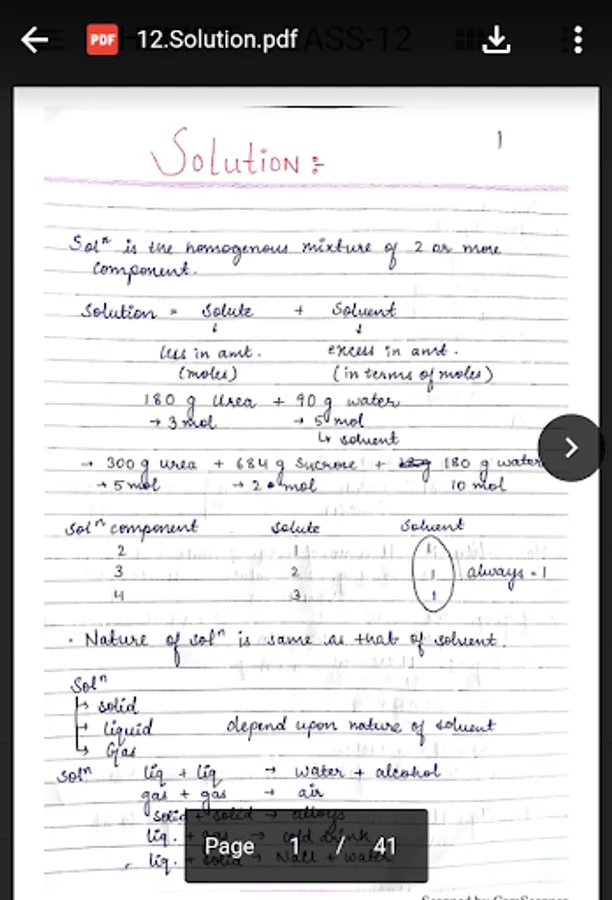 12.Solution.pdf
PDF
ASS-12
1
Solution :-
Solⁿ is the homogenous mixture of 2 or more
component.
Solution = Solute + Solvent
↓ ↓
less in amt. excess in amt.
(moles) (in terms of moles)
180 g Urea + 90 g water
→ 3 mol → 5 mol
↳ solvent
→ 300 g urea + 684 g Sucrose + 180 g water
→ 5 mol → 2 mol 10 mol
Solⁿ component Solute Solvent
2 1 1
3 2 1 always = 1
4 3 1
· Nature of solⁿ is same as that of solvent.
Solⁿ
→ solid
→ liquid depend upon nature of solvent
→ Gas
Solⁿ liq + liq → water + alcohol
gas + gas → air
solid + solid → alloys
liq. + gas → cold drink
liq. + solid → NaCl + water
Page 1 / 41
Scanned by CamScanner